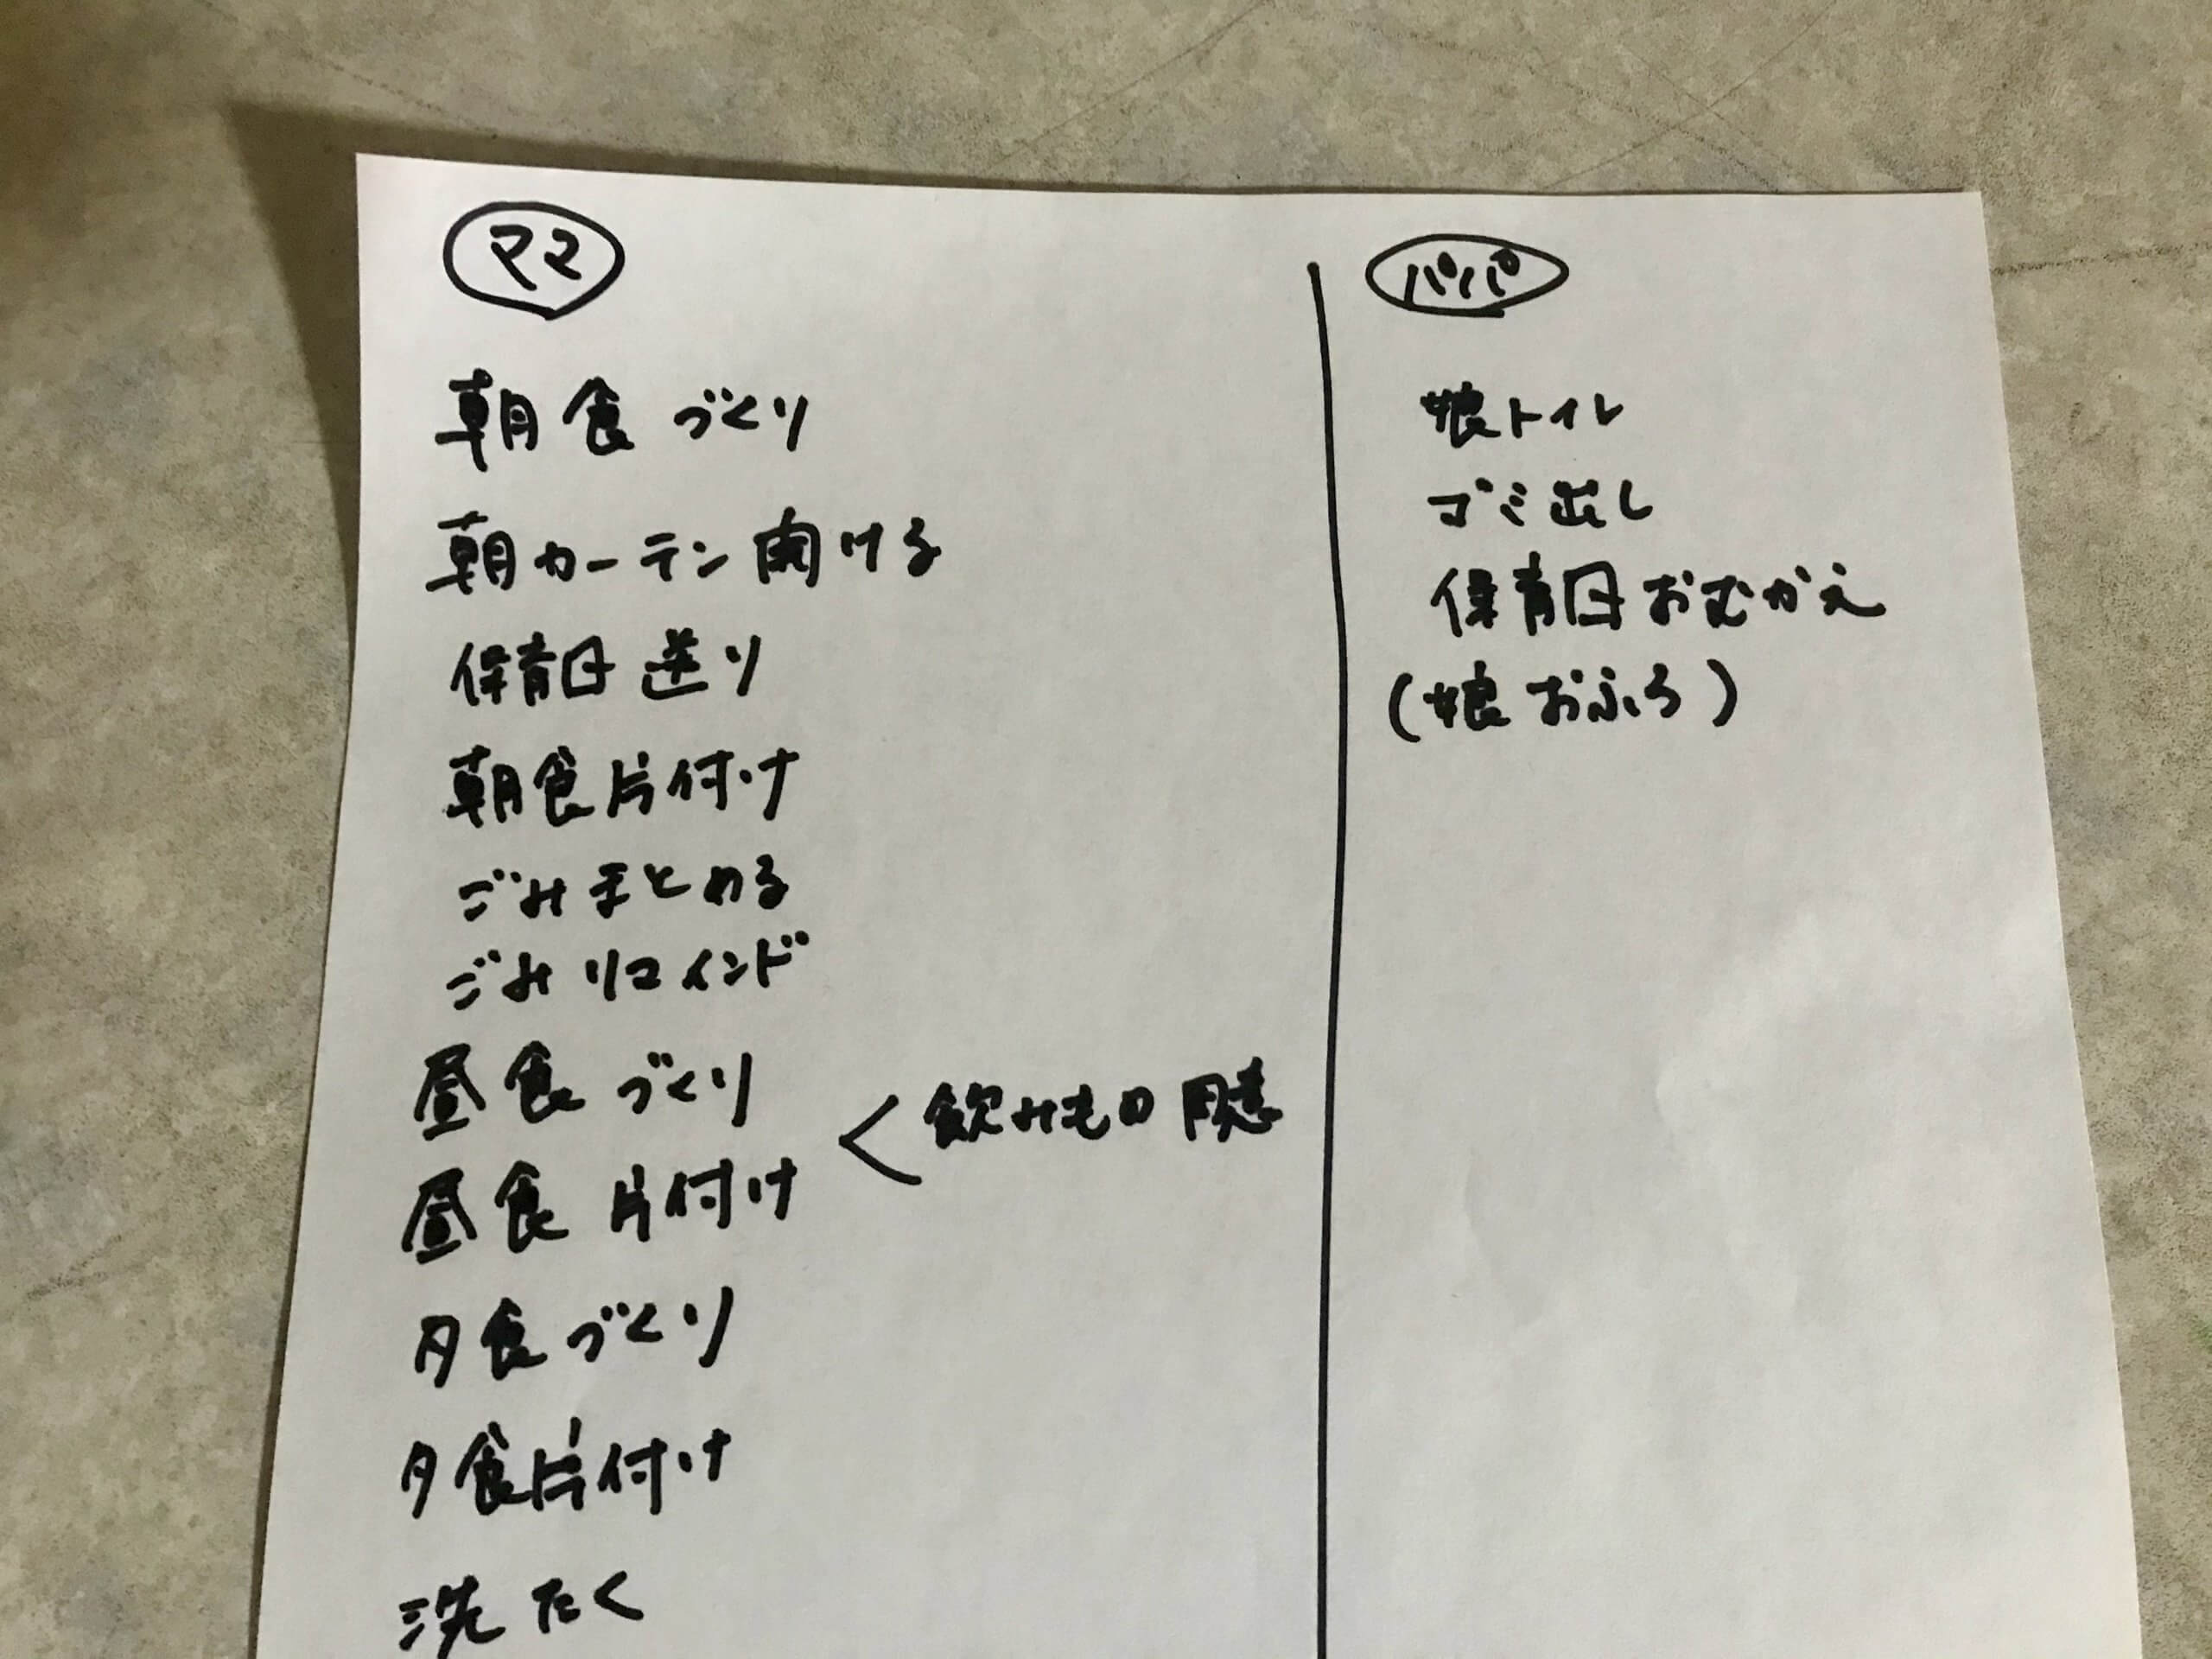 ママ
朝食づくり
朝カーテン開ける
保育園送り
朝食片付け
ごみまとめる
ごみリマインド
昼食づくり
昼食片付け
飲みもの用意
夕食づくり
夕食片付け
洗たく
パパ
娘トイレ
ゴミ出し
保育園おむかえ
(娘おふろ)